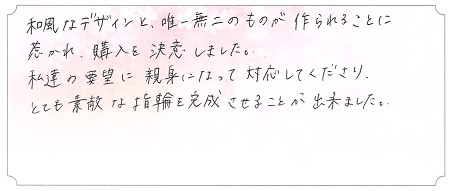 和風なデザインと、唯一無二のものが作られることに
惹かれ、購入を決意しました。
私達の要望に親身になって対応してくださり、
とても素敵な指輪を完成させることが出来ました。